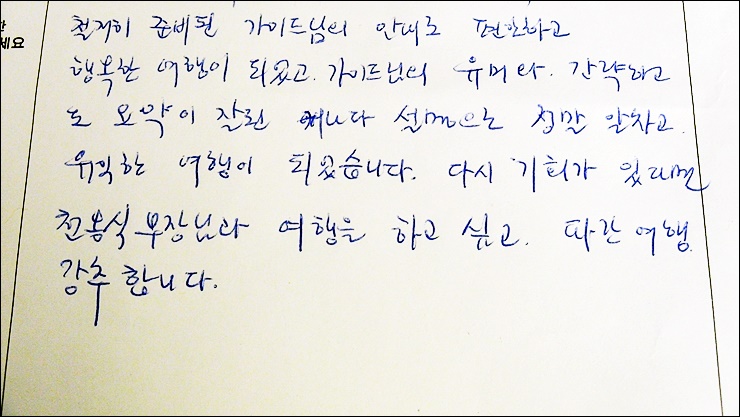 철저히 준비된 가이드님의 안내로 편안하고
행복한 여행이 되었고. 가이드님의 유머와. 간략하고
도 요약이 잘된 설명으로 정말 알차고.
유익한 여행이 되었습니다. 다시 기회가 있다면
천봉식 부장님과 여행을 하고 싶고. 따란여행.
강추 합니다.
세요